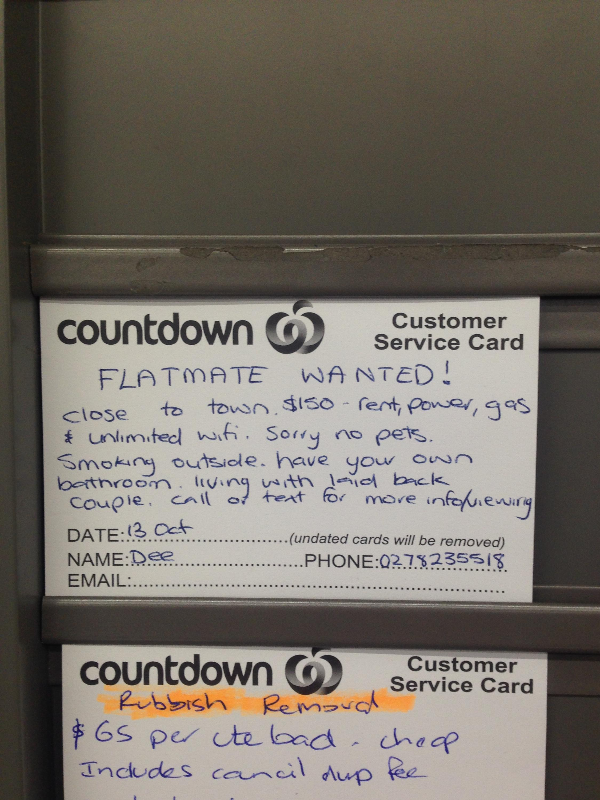 countdown Customer Service Card
FLATMATE WANTED!
close to town. $150 - rent, power, gas
& unlimited wifi. Sorry no pets.
Smoking outside. have your own
bathroom. living with laid back
couple. call or text for more info/viewing
DATE: 13 Oct (undated cards will be removed)
NAME: Dee PHONE: 0278235518
EMAIL:
countdown Customer Service Card
Rubbish Removal
$65 per ute load - cheap
Includes council dump fee